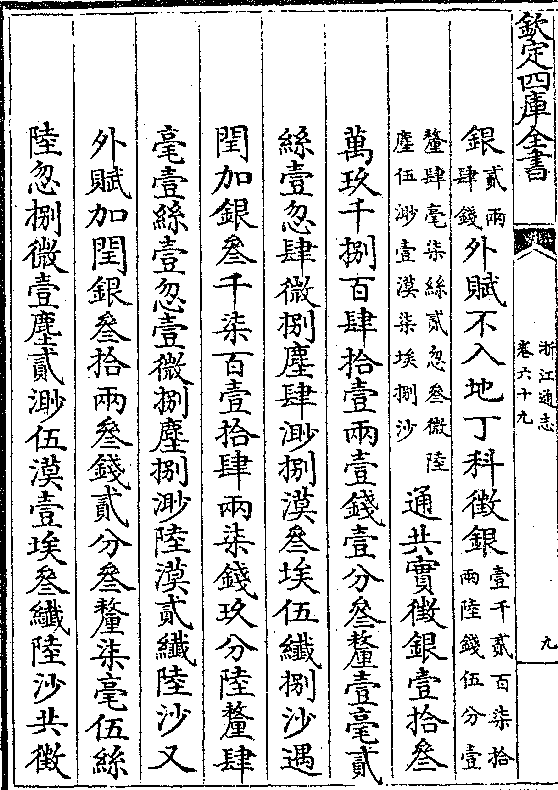 欽定四庫全書
浙江通志
卷六十九
九
銀貳兩肆錢外賦不入地丁科徵銀壹千貳百柒拾兩陸錢伍分壹
釐肆毫柒絲貳忽叁微陸塵伍渺壹漠柒埃捌沙通共實徵銀壹拾叁
萬玖千捌百肆拾壹兩壹錢壹分叁釐壹毫貳
絲壹忽肆微捌塵肆渺捌漠叁埃伍纖捌沙遇
閏加銀叁千柒百壹拾肆兩柒錢玖分陸釐肆
毫壹絲壹忽壹微捌塵捌渺陸漠貳纖陸沙又
外賦加閏銀叁拾兩叁錢貳分叁釐柒毫伍絲
陸忽捌微壹塵貳渺伍漠壹埃叁纖陸沙共徵